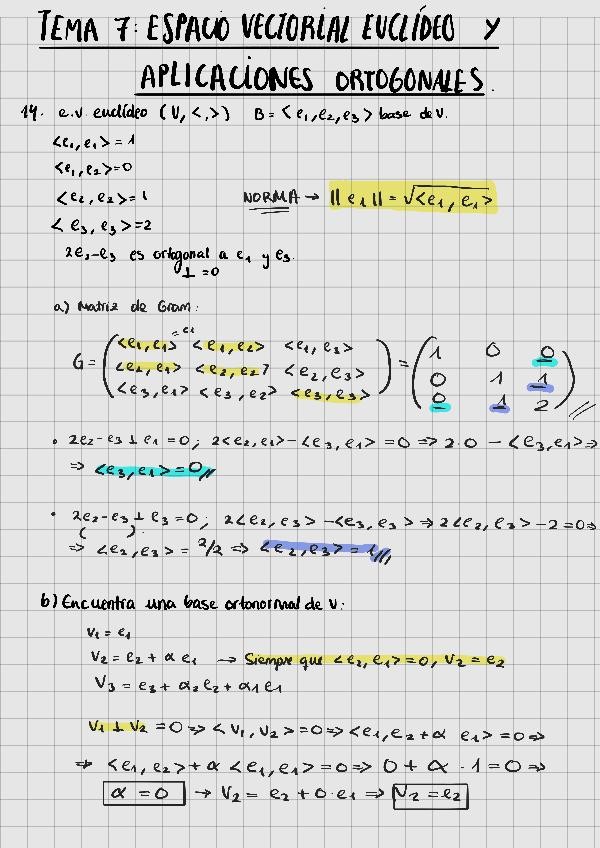 TEMA 7: ESPACIO VECTORIAL EUCLÍDEO Y
APLICACIONES ORTOGONALES.
14. e.v. euclídeo (V, <,>) B = <e1, e2, e3> base de V.
<e1, e1> = 1
<e1, e2> = 0
<e2, e2> = 1
NORMA → ||e1|| = √<e1, e1>
<e3, e3> = 2
2e2-e3 es ortogonal a e1 y e3.
⊥ = 0
a) Matriz de Gram:
G = ( <e1,e1> <e1,e2> <e1,e3> ) = ( 1 0 0 )
<e2,e1> <e2,e2> <e2,e3> 0 1 1
<e3,e1> <e3,e2> <e3,e3> 0 1 2 //
• 2e2-e3 ⊥ e1 = 0; 2<e2,e1> - <e3,e1> = 0 => 2·0 - <e3,e1> =>
=> <e3,e1> = 0 //
• 2e2-e3 ⊥ e3 = 0; 2<e2,e3> - <e3,e3> => 2<e2,e3> - 2 = 0 =>
=> <e2,e3> = 2/2 => <e2,e3> = 1 //
b) Encuentra una base ortonormal de V:
V1 = e1
V2 = e2 + α e1 → Siempre que <e2,e1> = 0, V2 = e2
V3 = e3 + α2e2 + α1e1
V1 ⊥ V2 = 0 => <V1, V2> = 0 => <e1, e2 + α e1> = 0 =>
=> <e1, e2> + α <e1, e1> = 0 => 0 + α · 1 = 0 =>
α = 0 → V2 = e2 + 0·e1 => V2 = e2